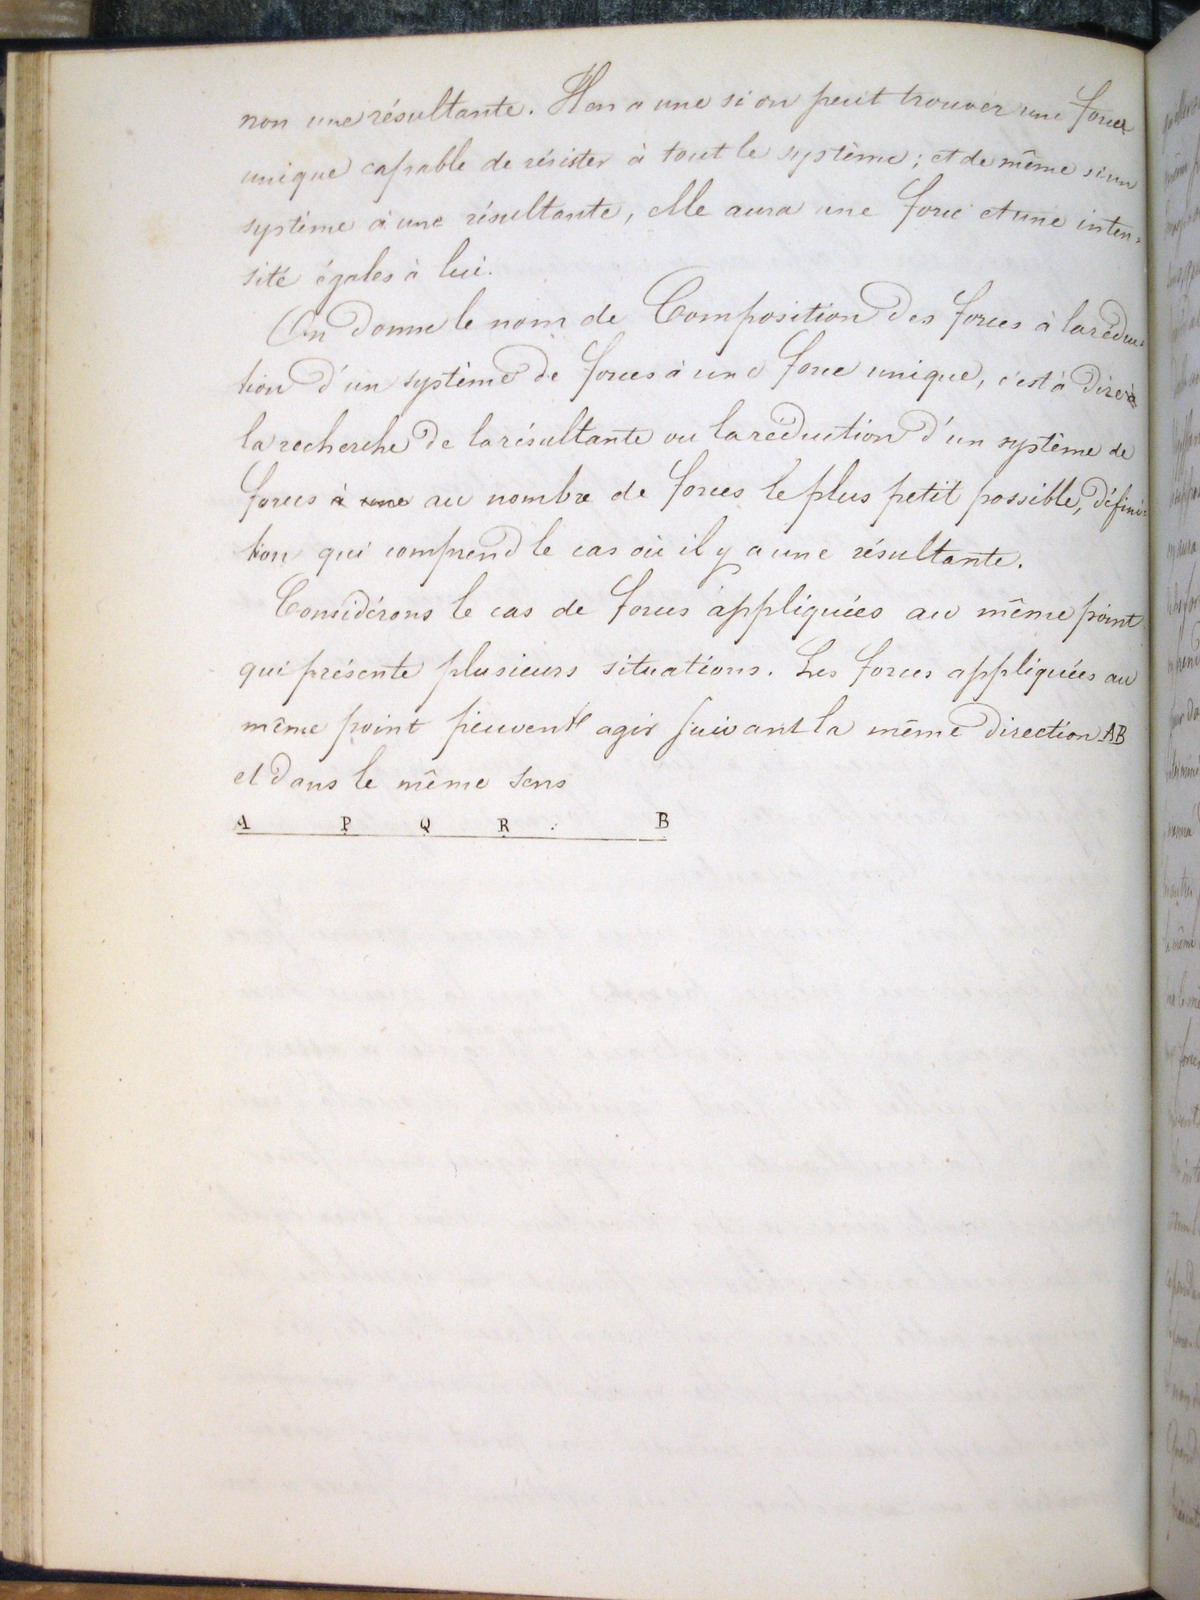 non une résultante. Il en a une si on peut trouver une force
unique capable de résister à tout le système; et de même si un
système a une résultante, elle aura une force et une inten-
sité égales à lui.
On donne le nom de Composition des forces à la réduc-
tion d'un système de forces à une force unique, c'est à dire à
la recherche de la résultante ou la réduction d'un système de
forces à une au nombre de forces le plus petit possible, défini-
tion qui comprend le cas où il y a une résultante.
Considérons le cas de forces appliquées au même point
qui présente plusieurs situations. Les forces appliquées au
même point peuvent agir suivant la même direction AB
et dans le même sens
A P Q R . B